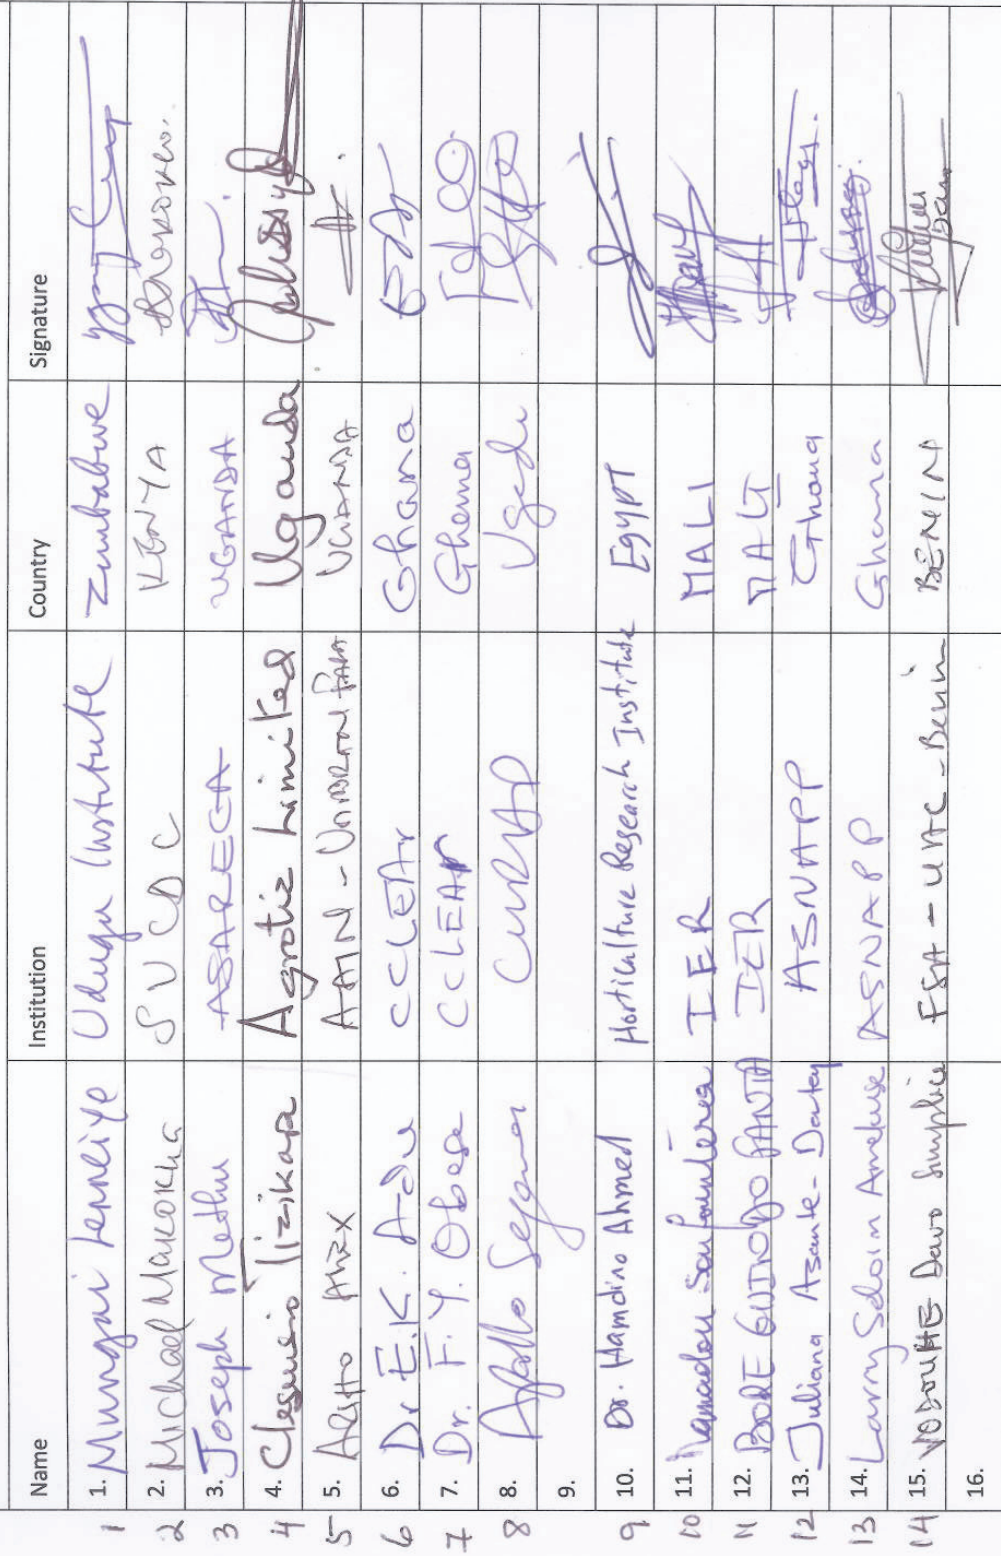 Name Institution Country Signature
1 1. Mungai Lenneiye Udugu Institute Zimbabwe
2 2. Michael Makokha SUCDC KENYA
3 3. Joseph Methu ASARECA UGANDA
4 4. Clesensio Tizikara Agrotiz Limited Uganda
5 5. Ariho Alex AAIN - UGANDA
6 6. Dr E.K. Adu CCLEAr Ghana
7 7. Dr. F.Y. Obese CCLEAr Ghana
8 8. Apollo Segawa CURAD
9.
9 10. Dr. Hamdino Ahmed Horticulture Research Institute Egypt
10 11. Mamadou IER MALI
11 12. BORE GUINDO FANTA IER MALI
12 13. Juliana Asante-Dartey ASNAPP Ghana
13 14. Larry Sedoin Amekuse ASNAPP Ghana
14 15. VODOUHE Davo Simplice FSA - UAC - Benin BENIN
16.